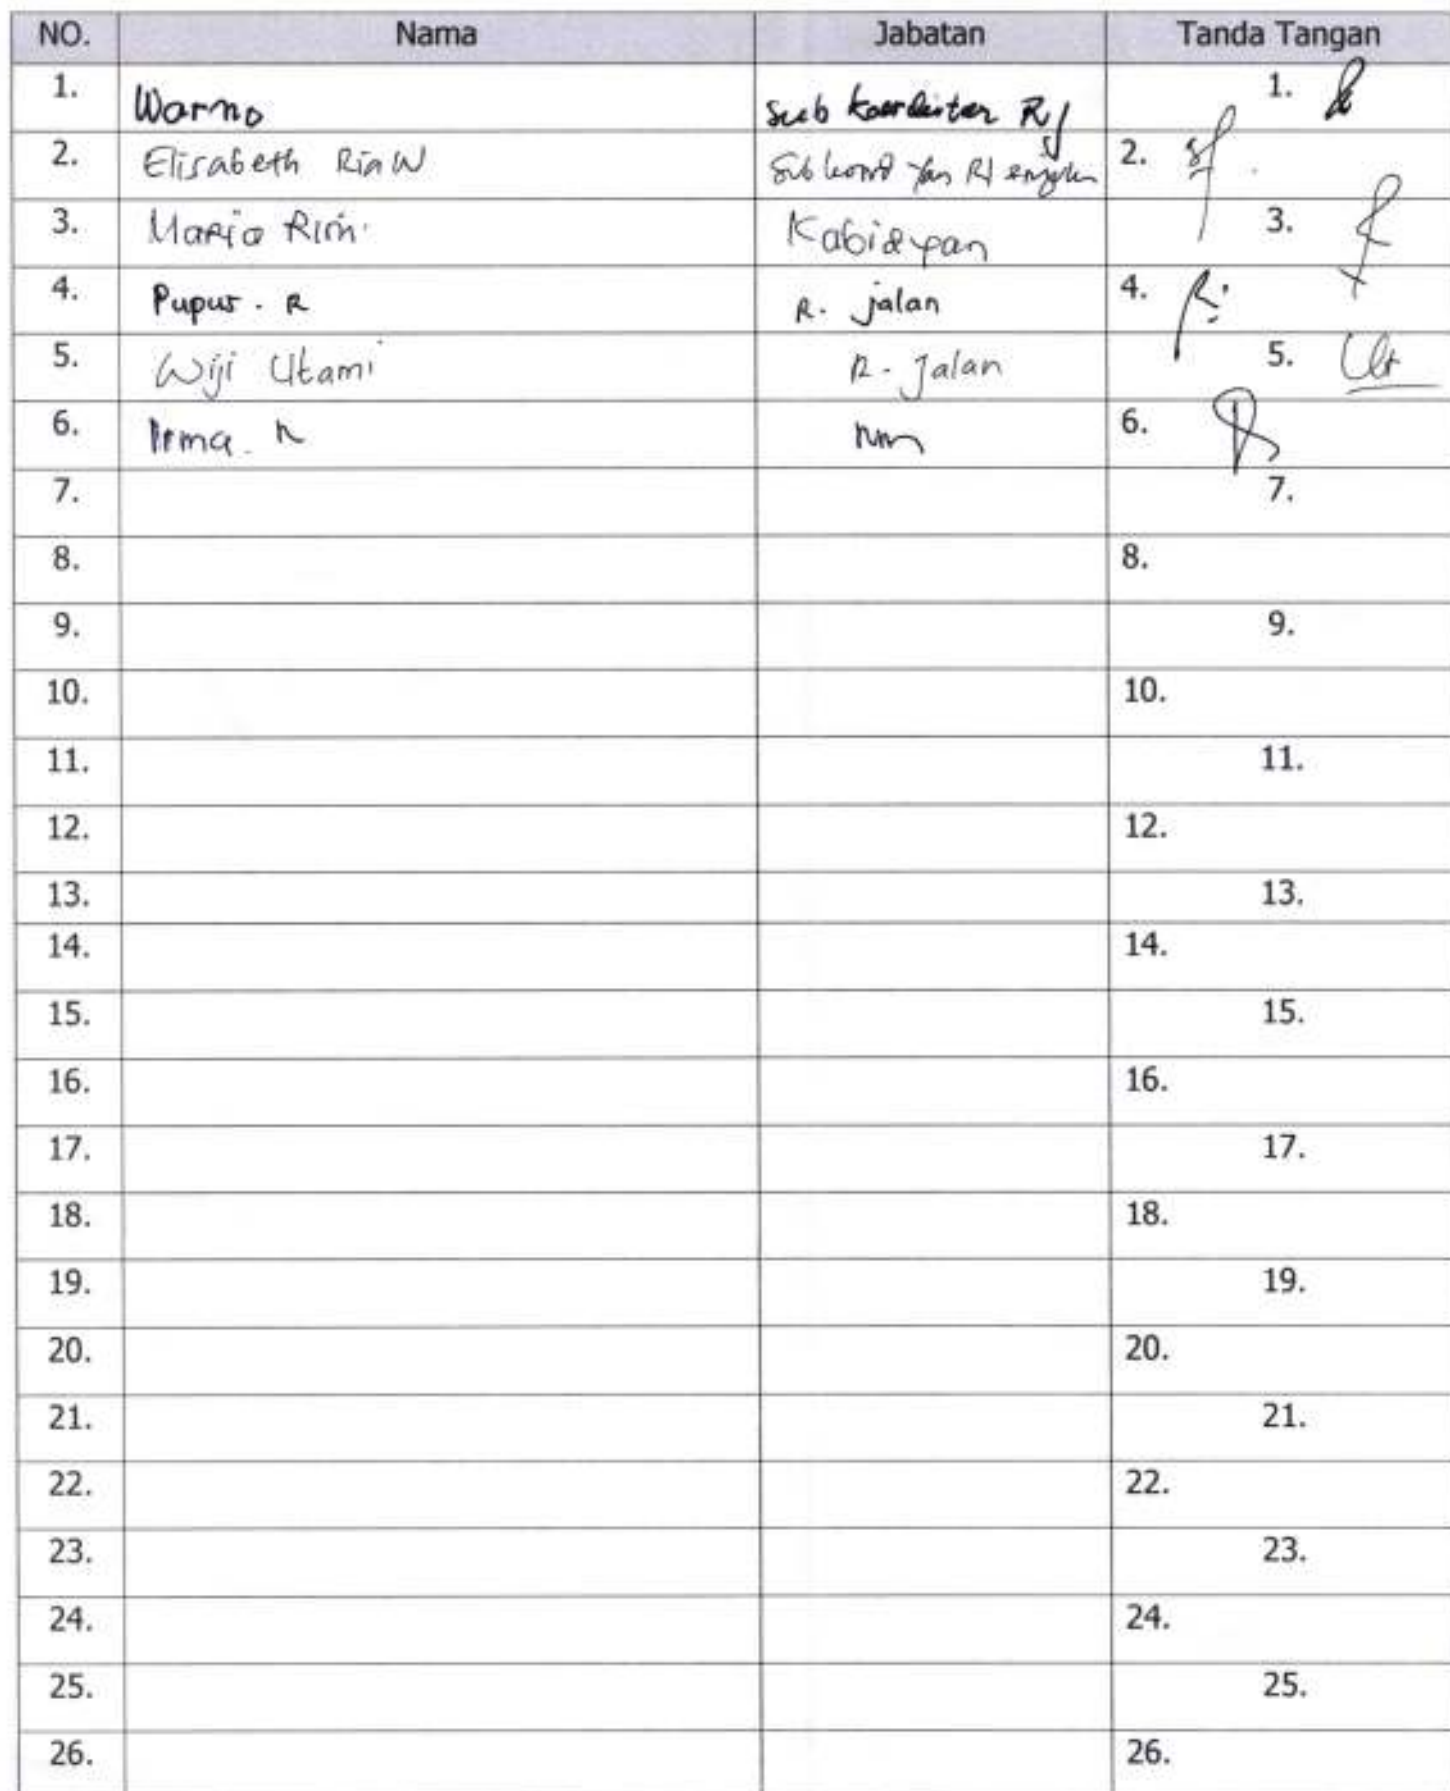 NO. Nama Jabatan Tanda Tangan
1. Warno Sub R 1.
2. Elisabeth Ria W 2.
3. Maria Rini 3.
4. Pupur. R R. jalan 4.
5. Wiji Utami R. Jalan 5.
6. 6.
7. 7.
8. 8.
9. 9.
10. 10.
11. 11.
12. 12.
13. 13.
14. 14.
15. 15.
16. 16.
17. 17.
18. 18.
19. 19.
20. 20.
21. 21.
22. 22.
23. 23.
24. 24.
25. 25.
26. 26.